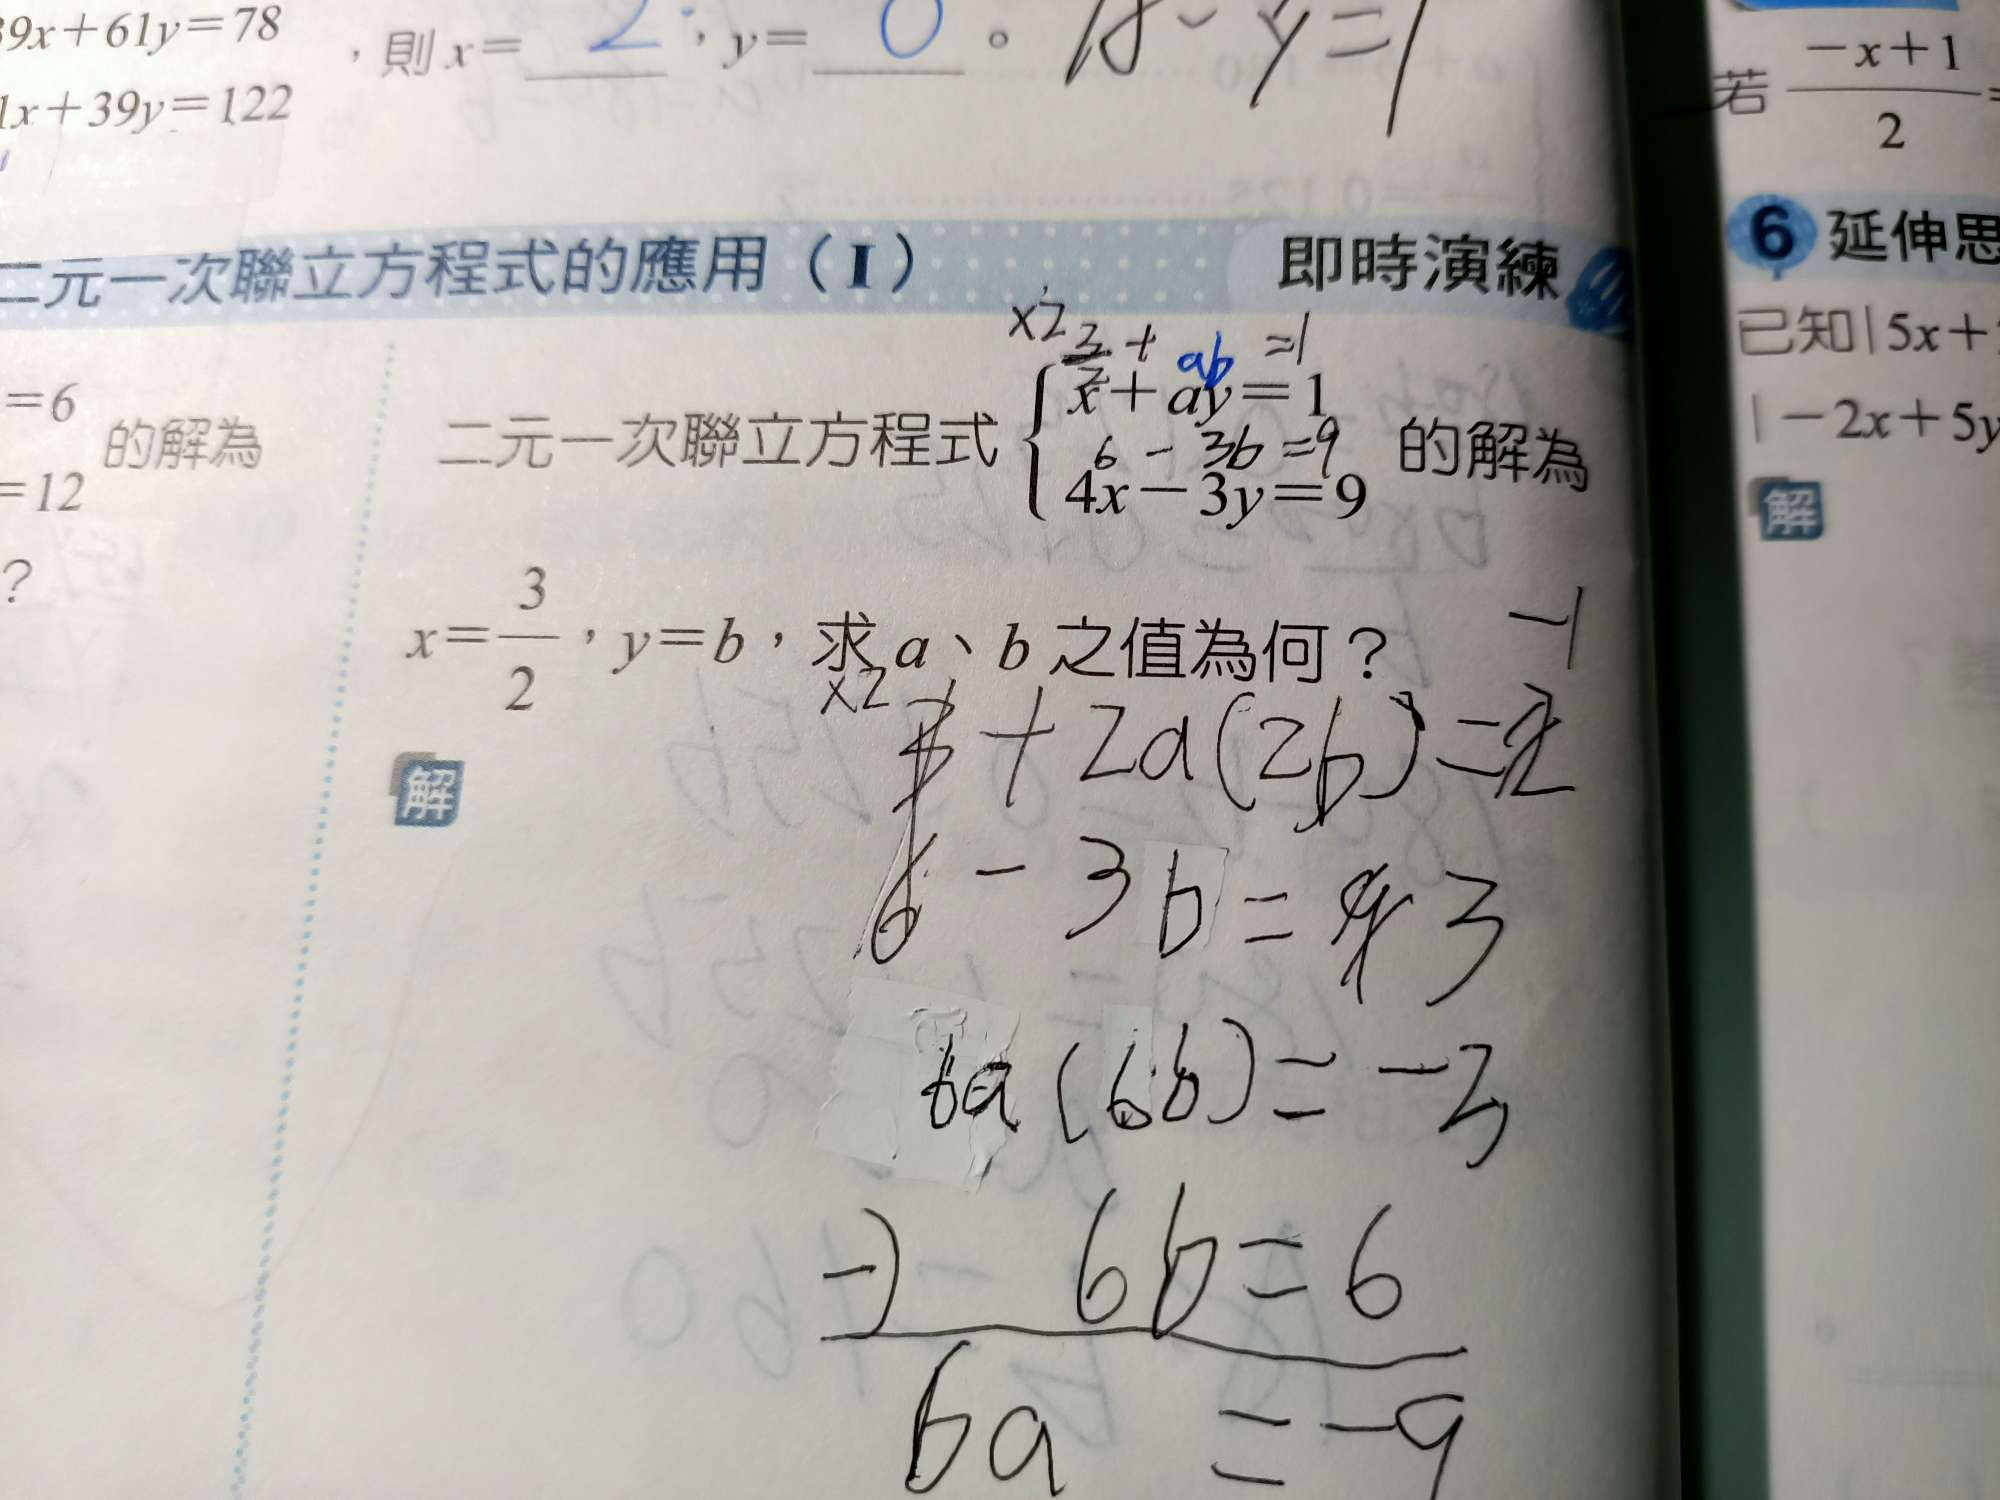 39x+61y=78
1x+39y=122
，則 x= 2 ，y= 0 。
-y=1
二元一次聯立方程式的應用（I） 即時演練
=6
=12
的解為
?
×2 3/2 + ab =1
x+ay=1
6 - 3b =9
4x-3y=9
二元一次聯立方程式 的解為
x=3/2，y=b，求 a、b 之值為何？
解
-1
×2 3 + 2a(2b) = 2
6 - 3b = 9 3
6a(6b) = -3
-) 6b = 6
6a = -9
若 -x+1/2 =
6 延伸思
已知|5x+
|-2x+5y
解